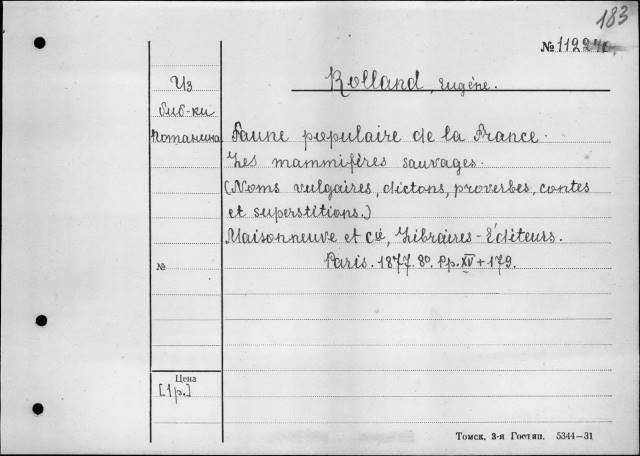 183
№ 11224
Rolland, Eugène.
Из
биб-ки
Потанина
Faune populaire de la France.
Les mammifères sauvages.
(Noms vulgaires, dictons, proverbes, contes
et superstitions.)
Maisonneuve et Cie, Libraires-Éditeurs.
Paris. 1877. 8º. Pp. XV + 179.
№
Цена
[1р.]
Томск, 3-я Гостип. 5344—31